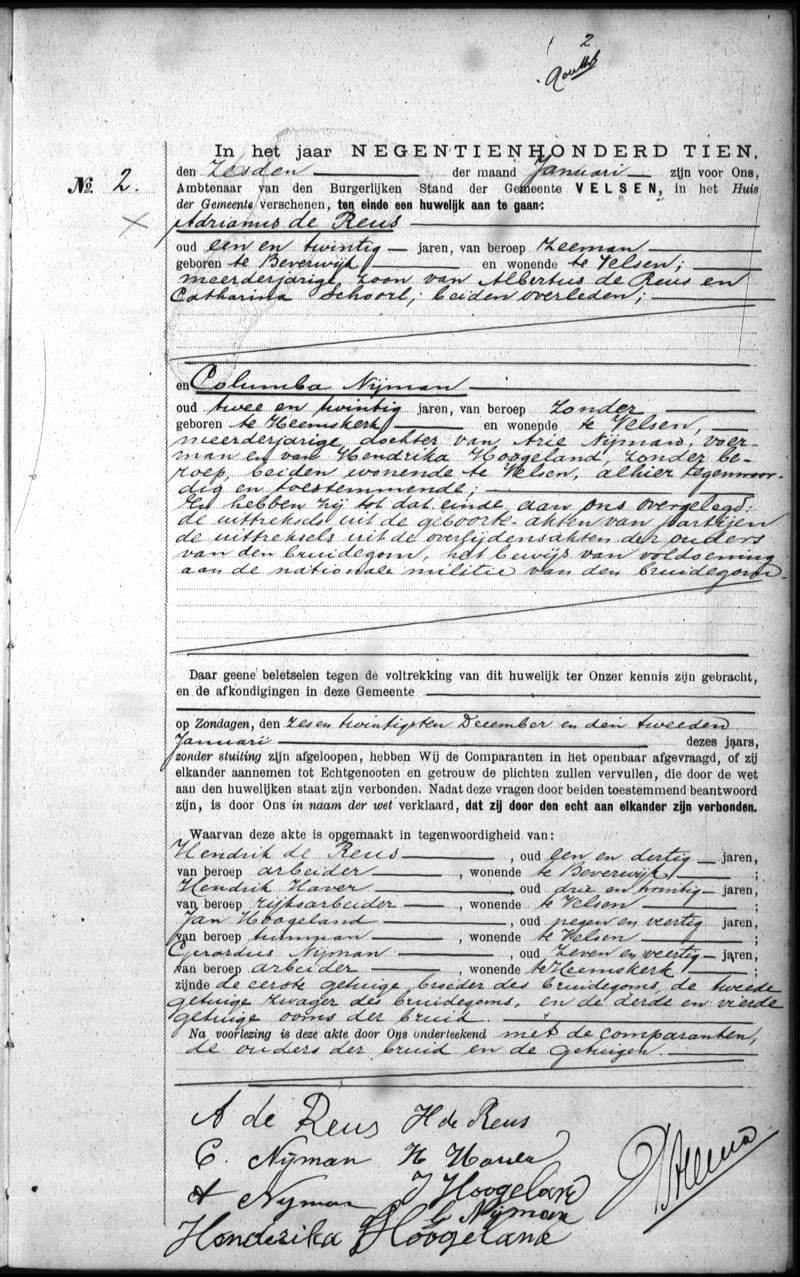 2
In het jaar NEGENTIENHONDERD TIEN,
den Zesden der maand Januari zijn voor Ons,
No. 2. Ambtenaar van den Burgerlijken Stand der Gemeente VELSEN, in het Huis
der Gemeente verschenen, ten einde een huwelijk aan te gaan:
Adrianus de Reus
oud een en twintig jaren, van beroep Zeeman
geboren te Beverwijk en wonende te Velsen;
meerderjarige zoon van Albertus de Reus en
Catharina Schoorl, beiden overleden;
en Columba Nijman
oud twee en twintig jaren, van beroep zonder
geboren te Heemskerk en wonende te Velsen,
meerderjarige dochter van Arie Nijman, voer-
man en van Hendrika Hoogeland, zonder be-
roep, beiden wonende te Velsen, alhier tegenwoor-
dig en toestemmende;
En hebben zij tot dat einde, aan ons overgelegd:
de uittreksels uit de geboorte-akten van partijen
de uittreksels uit de overlijdensakten der ouders
van den bruidegom, het bewijs van voldoening
aan de nationale militie van den bruidegom.
Daar geene beletselen tegen de voltrekking van dit huwelijk ter Onzer kennis zijn gebracht,
en de afkondigingen in deze Gemeente
op Zondagen, den zes en twintigsten December en den tweeden
Januari dezes jaars,
zonder stuiting zijn afgeloopen, hebben Wij de Comparanten in het openbaar afgevraagd, of zij
elkander aannemen tot Echtgenooten en getrouw de plichten zullen vervullen, die door de wet
aan den huwelijken staat zijn verbonden. Nadat deze vragen door beiden toestemmend beantwoord
zijn, is door Ons in naam der wet verklaard, dat zij door den echt aan elkander zijn verbonden.
Waarvan deze akte is opgemaakt in tegenwoordigheid van:
Hendrik de Reus, oud een en dertig jaren,
van beroep arbeider, wonende te Beverwijk;
Hendrik Haver, oud drie en twintig jaren,
van beroep rijksarbeider, wonende te Velsen;
Jan Hoogeland, oud negen en veertig jaren,
van beroep tuinman, wonende te Velsen;
Gerardus Nijman, oud zeven en veertig jaren,
van beroep arbeider, wonende te Heemskerk;
zijnde de eerste getuige broeder des bruidegoms, de tweede
getuige zwager des bruidegoms, en de derde en vierde
getuige ooms der bruid.
Na voorlezing is deze akte door Ons onderteekend met de comparanten,
de ouders der bruid en de getuigen.
A de Reus H de Reus
C. Nijman H Haver
A Nijman J Hoogeland
G Nijman
Henderika Hoogeland